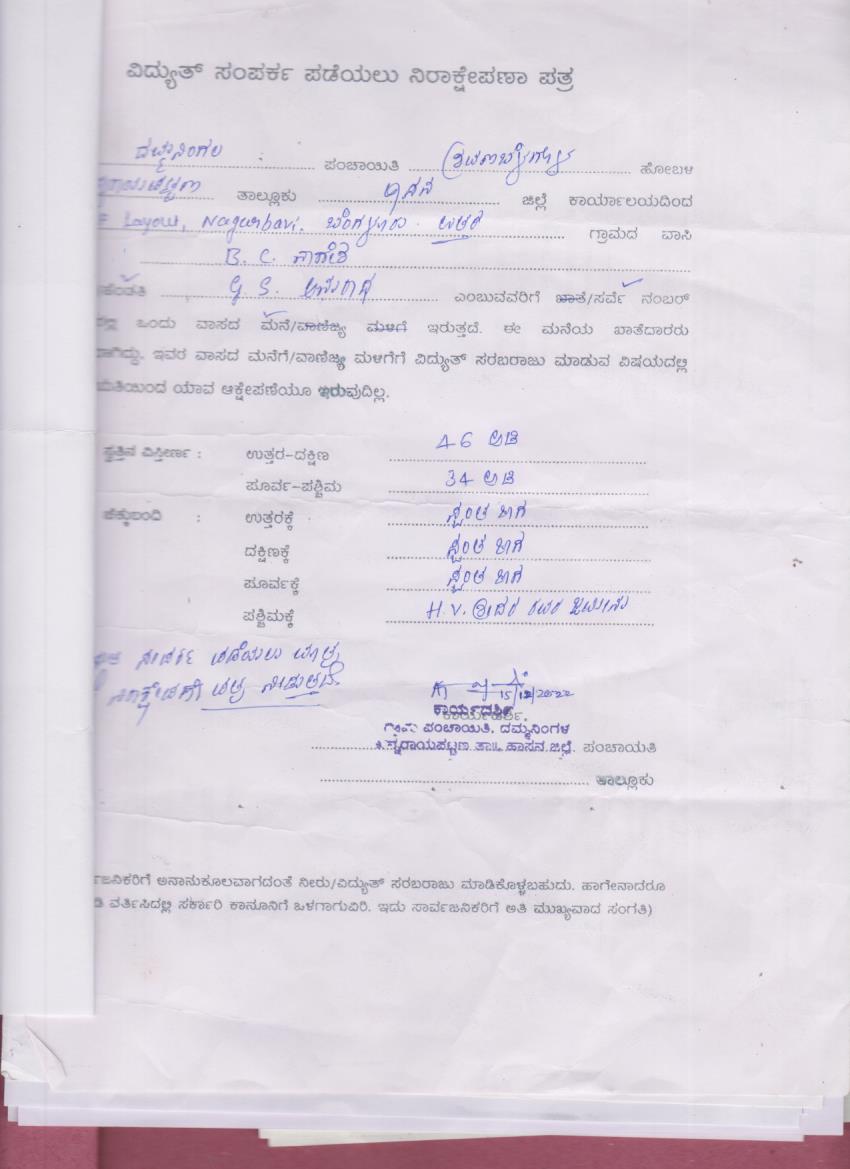 ವಿದ್ಯುತ್ ಸಂಪರ್ಕ ಪಡೆಯಲು ನಿರಾಕ್ಷೇಪಣಾ ಪತ್ರ
ದಮ್ಮನಿಂಗಲ ಪಂಚಾಯಿತಿ ಶ್ರವಣಬೆಳಗೊಳ ಹೋಬಳಿ
ತಾಲ್ಲೂಕು ಹಾಸನ ಜಿಲ್ಲೆ ಕಾರ್ಯಾಲಯದಿಂದ
F Layout, Nagarbavi, ಬೆಂಗಳೂರು ಉತ್ತರ ಗ್ರಾಮದ ವಾಸಿ
B. C. ನಾಗೇಶ
ಹೆಂಡತಿ G. S. ಅನುರಾಧ ಎಂಬುವವರಿಗೆ ಖಾತೆ/ಸರ್ವೆ ನಂಬರ್
ಒಂದು ವಾಸದ ಮನೆ/ವಾಣಿಜ್ಯ ಮಳಗೆ ಇರುತ್ತದೆ. ಈ ಮನೆಯ ಖಾತೆದಾರರು
ಇವರ ವಾಸದ ಮನೆಗೆ/ವಾಣಿಜ್ಯ ಮಳಗೆಗೆ ವಿದ್ಯುತ್ ಸರಬರಾಜು ಮಾಡುವ ವಿಷಯದಲ್ಲಿ
ಯಾವ ಆಕ್ಷೇಪಣೆಯೂ ಇರುವುದಿಲ್ಲ.
ಸ್ವತ್ತಿನ ವಿಸ್ತೀರ್ಣ : ಉತ್ತರ-ದಕ್ಷಿಣ 46 ಅಡಿ
ಪೂರ್ವ-ಪಶ್ಚಿಮ 34 ಅಡಿ
ಚೆಕ್ಕುಬಂದಿ : ಉತ್ತರಕ್ಕೆ ಸ್ವಂತ ಜಾಗ
ದಕ್ಷಿಣಕ್ಕೆ ಸ್ವಂತ ಜಾಗ
ಪೂರ್ವಕ್ಕೆ ಸ್ವಂತ ಜಾಗ
ಪಶ್ಚಿಮಕ್ಕೆ H.V. ಶ್ರೀಧರ ರವರ ಜಮೀನು
ಪಡೆಯಲು ಮಾತ್ರ
ನಿರಾಕ್ಷೇಪಣೆ ಪತ್ರ ನೀಡುತ್ತದೆ.
15/12/2022
ಕಾರ್ಯದರ್ಶಿ
ಕಾರ್ಯದರ್ಶಿ,
ಗ್ರಾಮ ಪಂಚಾಯಿತಿ, ದಮ್ಮನಿಂಗಳ
ಚನ್ನರಾಯಪಟ್ಟಣ ತಾ||, ಹಾಸನ ಜಿಲ್ಲೆ. ಪಂಚಾಯತಿ
ತಾಲ್ಲೂಕು
ಅನಾನುಕೂಲವಾಗದಂತೆ ನೀರು/ವಿದ್ಯುತ್ ಸರಬರಾಜು ಮಾಡಿಕೊಳ್ಳಬಹುದು. ಹಾಗೇನಾದರೂ
ವರ್ತಿಸಿದಲ್ಲಿ ಸರ್ಕಾರಿ ಕಾನೂನಿಗೆ ಒಳಗಾಗುವಿರಿ. ಇದು ಸಾರ್ವಜನಿಕರಿಗೆ ಅತಿ ಮುಖ್ಯವಾದ ಸಂಗತಿ)